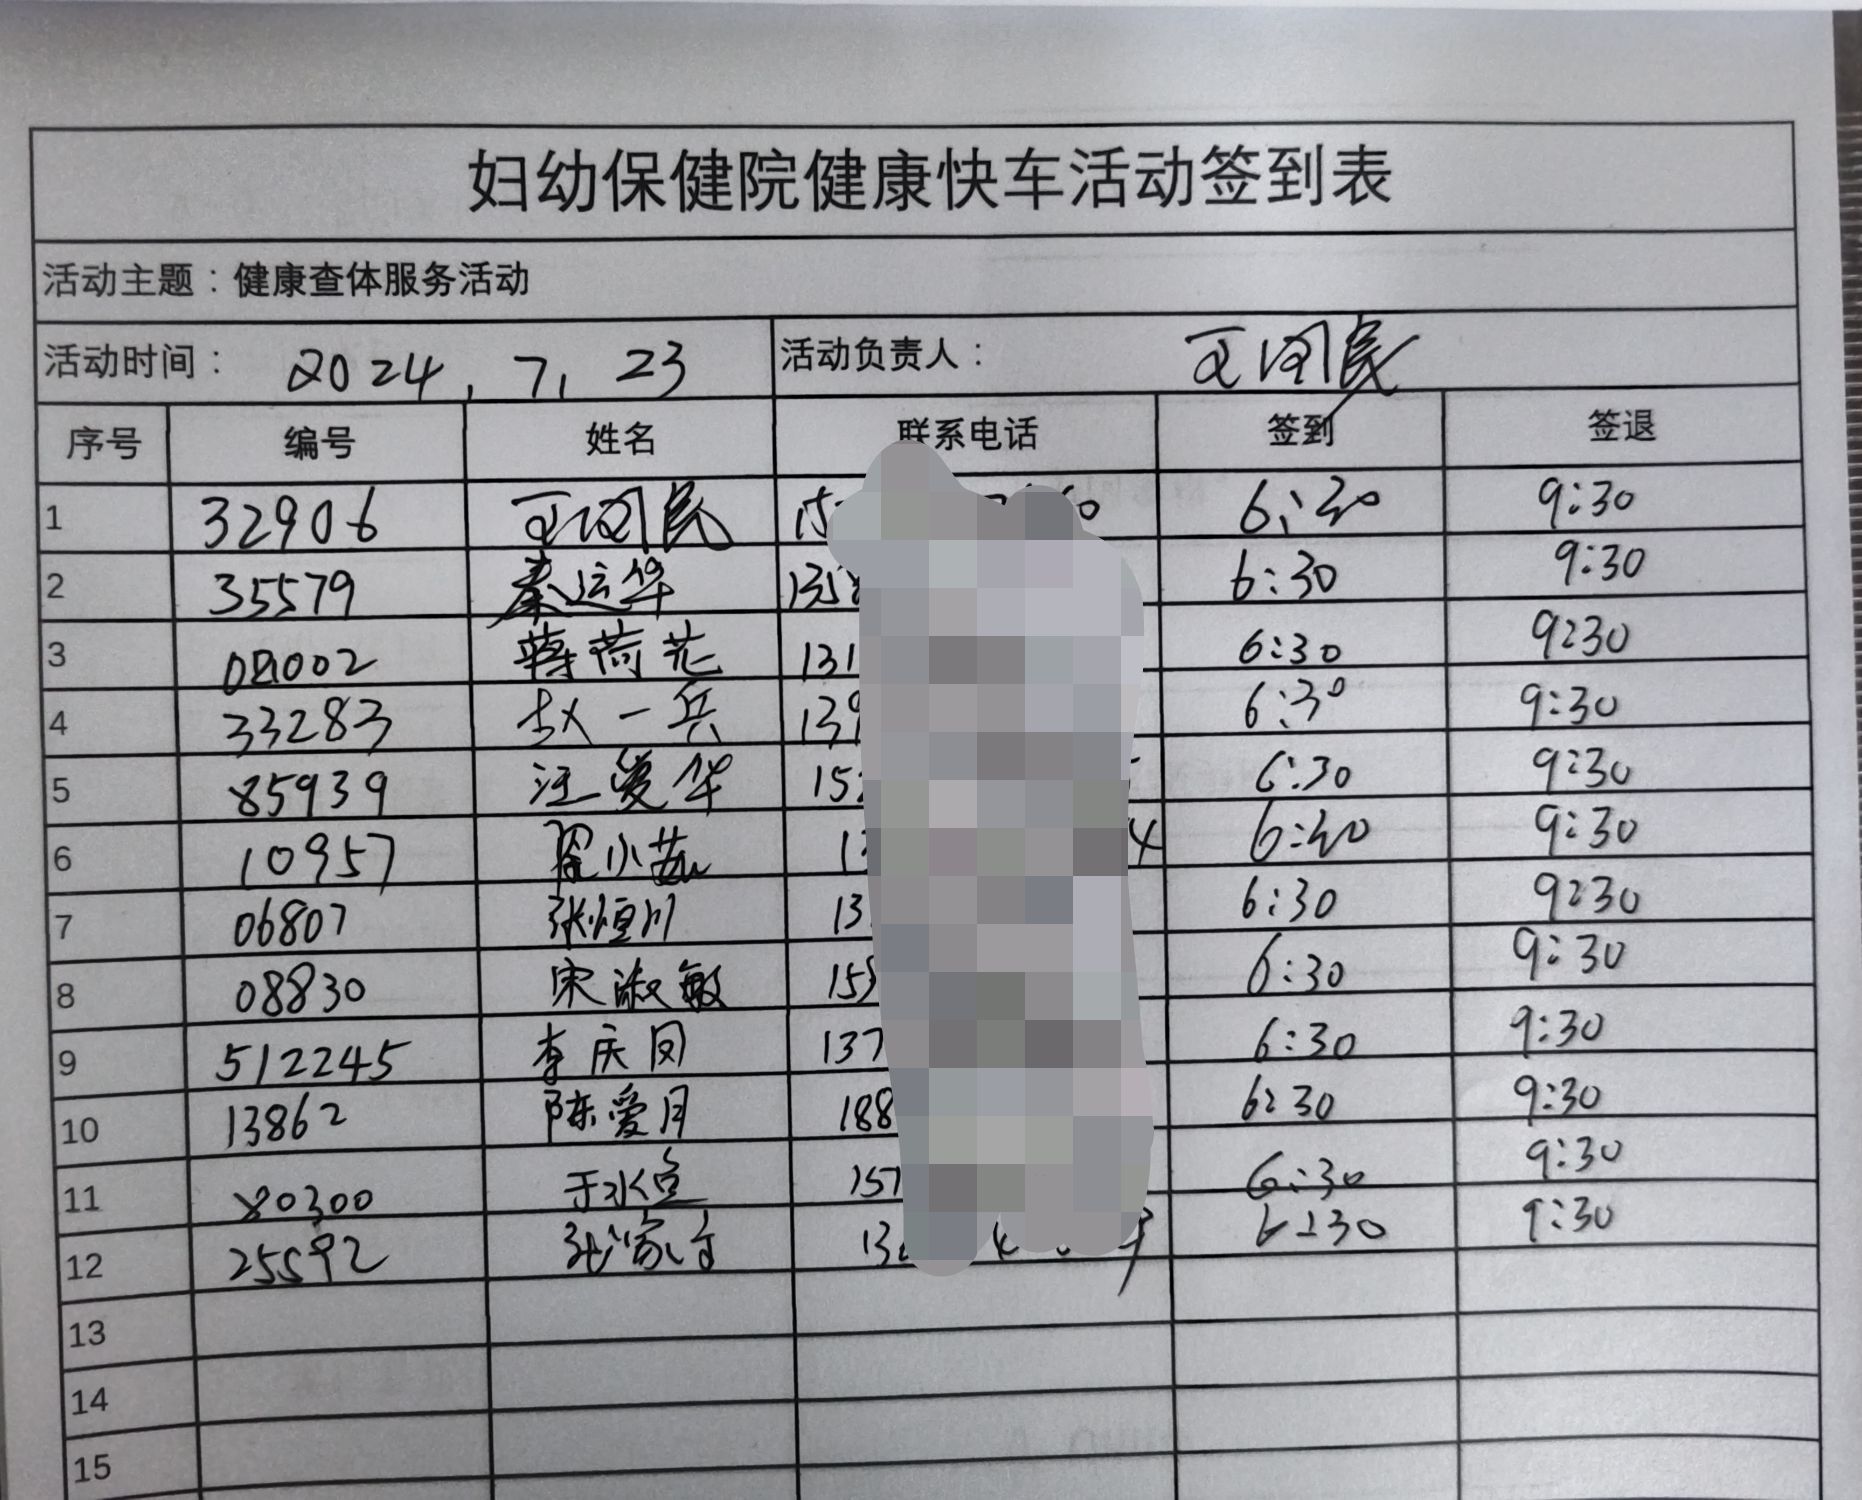 妇幼保健院健康快车活动签到表
活动主题：健康查体服务活动
活动时间： 2024, 7, 23 活动负责人： 王国民
序号 编号 姓名 联系电话 签到 签退
1 32906 王国民 15 60 6:30 9:30
2 35579 秦运华 135 6:30 9:30
3 002 蒋荷花 131 6:30 9:30
4 33283 赵一兵 139 6:30 9:30
5 85939 汪爱华 15 6:30 9:30
6 10957 小 1 4 6:40 9:30
7 06807 张恒川 13 6:30 9:30
8 08830 宋淑敏 155 6:30 9:30
9 512245 李庆凤 137 6:30 9:30
10 13862 陈爱月 188 6:30 9:30
11 80300 于水 157 6:30 9:30
12 25592 张家 13 6:30 9:30
13
14
15